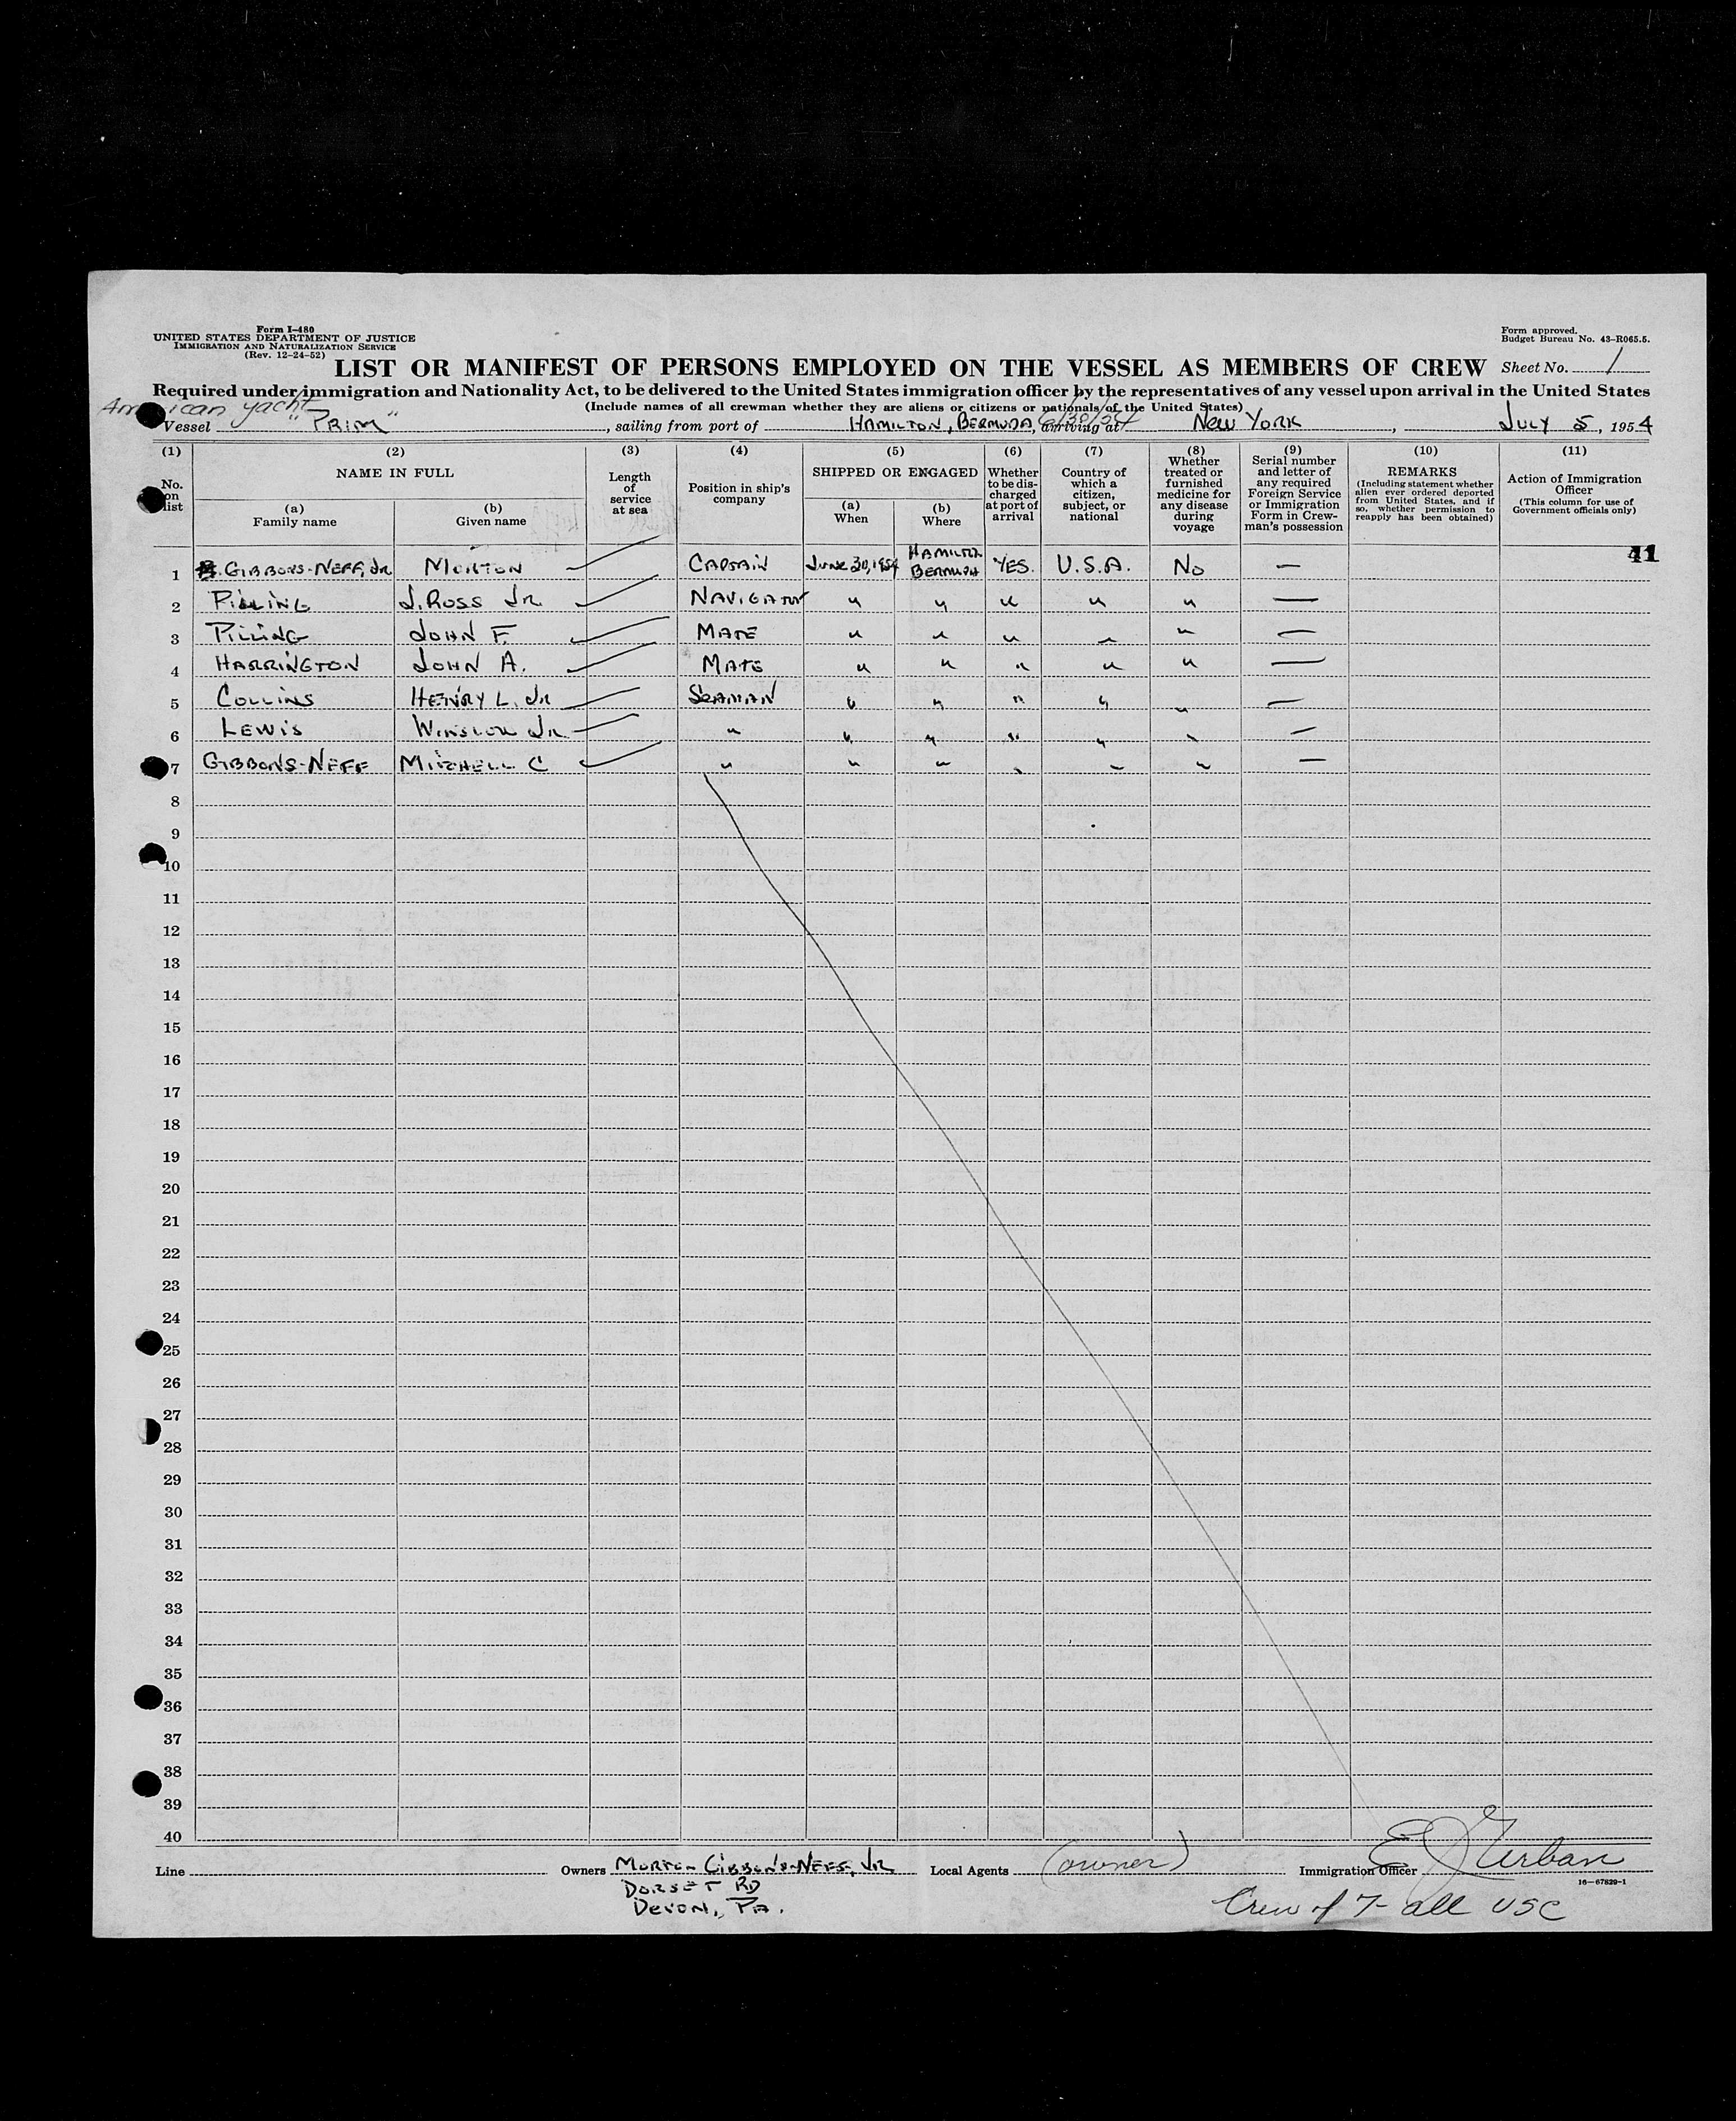 Form I-480
UNITED STATES DEPARTMENT OF JUSTICE
IMMIGRATION AND NATURALIZATION SERVICE
(Rev. 12-24-52)
Form approved.
Budget Bureau No. 43-R065.5.
LIST OR MANIFEST OF PERSONS EMPLOYED ON THE VESSEL AS MEMBERS OF CREW Sheet No. 1
Required under immigration and Nationality Act, to be delivered to the United States immigration officer by the representatives of any vessel upon arrival in the United States
(Include names of all crewman whether they are aliens or citizens or nationals of the United States)
American yacht 6/30/54
Vessel "PRIM", sailing from port of HAMILTON, BERMUDA, arriving at NEW YORK, JULY 5, 1954
(1) (2) (3) (4) (5) (6) (7) (8) (9) (10) (11)
No. on list
NAME IN FULL
(a) Family name
(b) Given name
Length of service at sea
Position in ship's company
SHIPPED OR ENGAGED
(a) When
(b) Where
Whether to be discharged at port of arrival
Country of which a citizen, subject, or national
Whether treated or furnished medicine for any disease during voyage
Serial number and letter of any required Foreign Service or Immigration Form in Crewman's possession
REMARKS
(Including statement whether alien ever ordered deported from United States, and if so, whether permission to reapply has been obtained)
Action of Immigration Officer
(This column for use of Government officials only)
41
1 GIBBONS-NEFF, JR MORTON CAPTAIN JUNE 30, 1954 HAMILTON BERMUDA YES. U.S.A. NO —
2 PILLING J. ROSS JR. NAVIGATOR " " " " " —
3 PILLING JOHN F. MATE " " " " " —
4 HARRINGTON JOHN A. MATE " " " " " —
5 COLLINS HENRY L. JR SEAMAN " " " " " —
6 LEWIS WINSLOW JR. " " " " " " —
7 GIBBONS-NEFF MITCHELL C " " " " " " —
8
9
10
11
12
13
14
15
16
17
18
19
20
21
22
23
24
25
26
27
28
29
30
31
32
33
34
35
36
37
38
39
40
Line Owners MORTON GIBBONS-NEFF, JR Local Agents (owner) Immigration Officer E J Urban
DORSET RD
DEVON, PA.
16—67829-1
Crew of 7- all USC